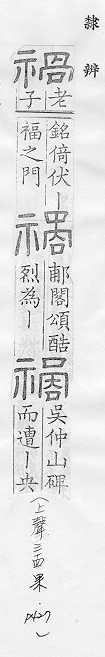 隸辨
禍老子銘倚伏〡福之門禍郙閣頌酷烈為〡禍吳仲山碑而遭〡央(上聲三四果.P427)